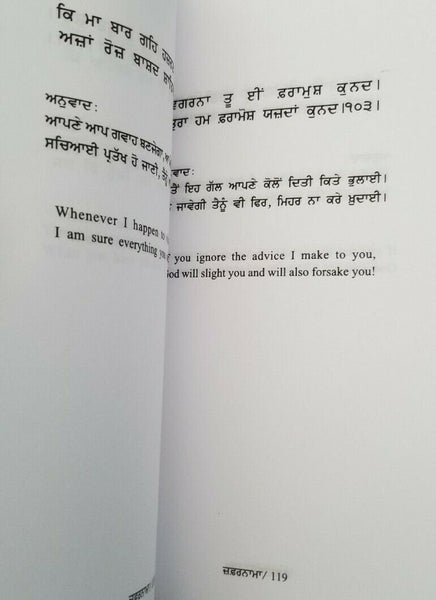 ਕਿ ਮਾ ਬਾਰ ਗਹਿ
ਅਜ਼ਾਂ ਰੋਜ਼ ਬਾਸ਼ਦ
ਅਨੁਵਾਦ:
ਆਪਣੇ ਆਪ ਗਵਾਹ ਬਣਜੇਗਾ,
ਸਚਿਆਈ ਪ੍ਰਤੱਖ ਹੋ ਜਾਣੀ,
Whenever I happen to
I am sure everything
ਵਗਰਨਾ ਤੂ ਈਂ ਫ਼ਰਾਮੁਸ਼ ਕੁਨਦ।
ਤੁਰਾ ਹਮ ਫ਼ਰਾਮੋਸ਼ ਯਜ਼ਦਾਂ ਕੁਨਦ।੧੦੩।
ਵਾਦ:
ਤੈਂ ਇਹ ਗੱਲ ਆਪਣੇ ਕੋਲੋਂ ਦਿਤੀ ਕਿਤੇ ਭੁਲਾਈ।
ਜਾਵੇਗੀ ਤੈਨੂੰ ਵੀ ਫਿਰ, ਮਿਹਰ ਨਾ ਕਰੇ ਖ਼ੁਦਾਈ।
you ignore the advice I make to you,
God will slight you and will also forsake you!
ਜ਼ਫ਼ਰਨਾਮਾ/ 119
ਜ਼ਫ਼ਰਨਾਮਾ/